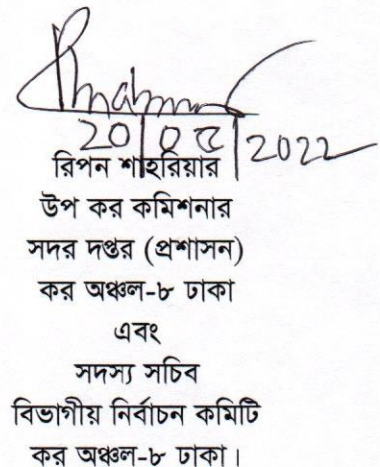 20|05|2022
রিপন শাহরিয়ার
উপ কর কমিশনার
সদর দপ্তর (প্রশাসন)
কর অঞ্চল-৮ ঢাকা
এবং
সদস্য সচিব
বিভাগীয় নির্বাচন কমিটি
কর অঞ্চল-৮ ঢাকা।